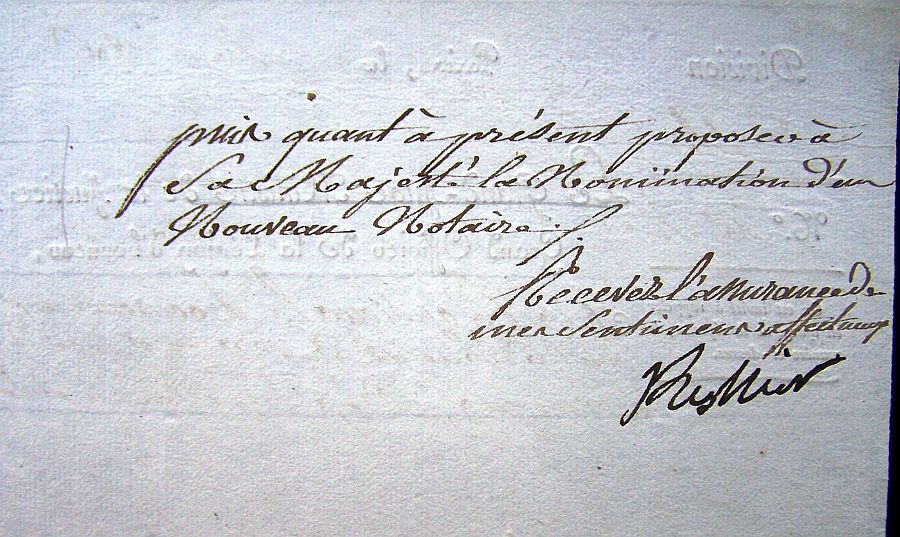 puis quant à présent proposer à
Sa Majesté la Nomination d'un
Nouveau Notaire.
Recevez l'assurance de
mes Sentimens affectueux